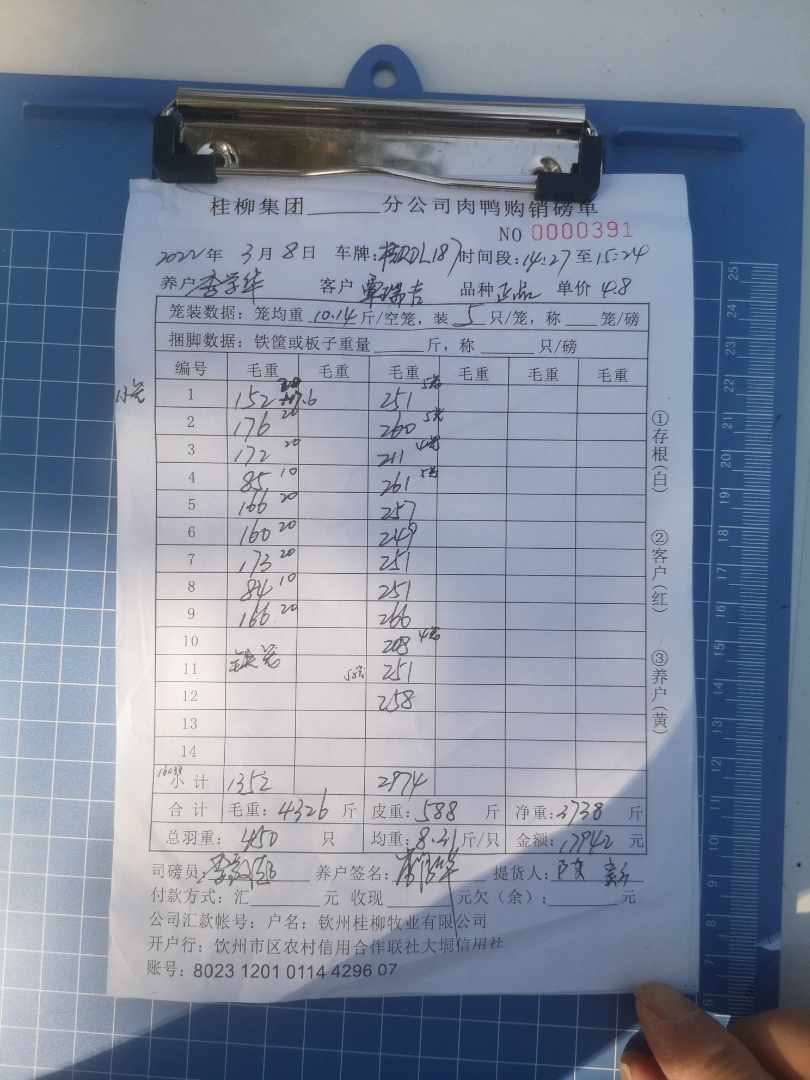 桂柳集团______分公司肉鸭购销磅单
NO 0000391
2022年 3月8日 车牌: DL187 时间段:14:27至15:24
养户 李学华 客户 覃瑞吉 品种 正品 单价 4.8
笼装数据:笼均重 10.14 斤/空笼,装 5 只/笼,称 ___ 笼/磅
捆脚数据:铁筐或板子重量 ______ 斤,称 ______ 只/磅
编号 毛重 毛重 毛重 毛重 毛重 毛重
1 152 20 251
2 176 20 260
3 172 20 211
4 85 10 261
5 166 20 257
6 160 20 249
7 173 20 251
8 84 10 251
9 166 20 266
10 203
11 251
12 258
13
14
小计 1352 2974
合计 毛重:4326 斤 皮重:588 斤 净重:3738 斤
总羽重: 450 只 均重:8.31 斤/只 金额:17942 元
司磅员: 养户签名: 提货人:
付款方式:汇______元 收现______元欠(余):______元
公司汇款帐号:户名:钦州桂柳牧业有限公司
开户行:钦州市区农村信用合作联社大垌信用社
账号:8023 1201 0114 4296 07
①存根(白)
②客户(红)
③养户(黄)
25
23
22
21
20
19
18
17
16
15
14
13
12
11
10
9
8
7
6